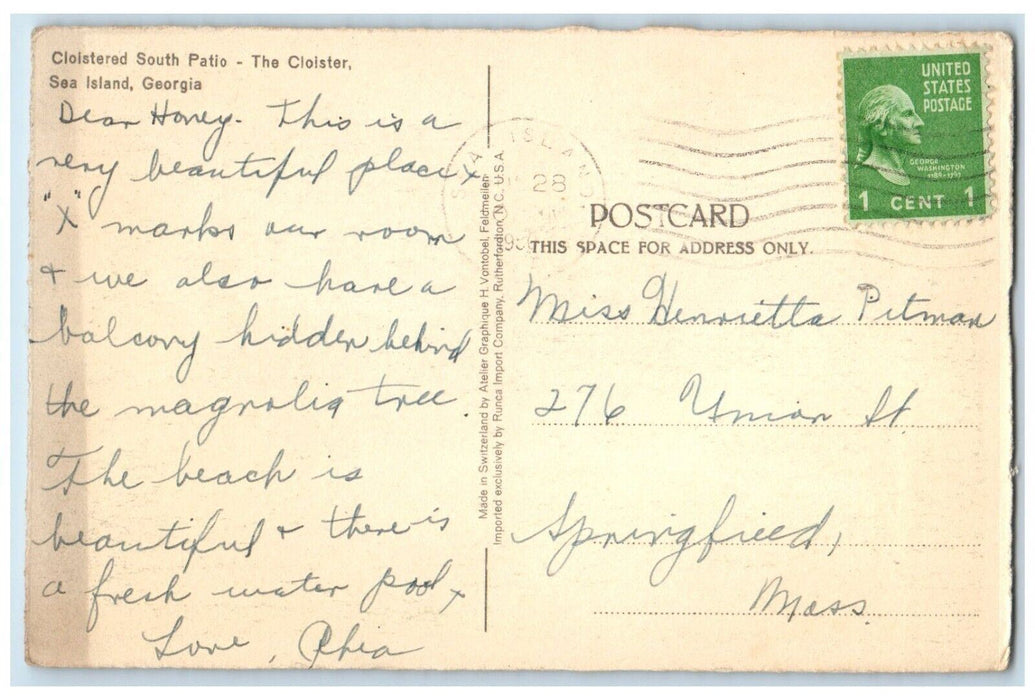 Cloistered South Patio - The Cloister,
Sea Island, Georgia
Dear Honey. This is a
very beautiful place x
"X" marks our room
+ we also have a
balcony hidden behind
the magnolia tree.
The beach is
beautiful + there is
a fresh water pool x
Love,
Made in Switzerland by Atelier Graphique H. Vontobel, Feldmeilen
Imported exclusively by Runca Import Company, Rutherfordton, N.C., U.S.A.
SEA ISLAND
28
UNITED
STATES
POSTAGE
GEORGE
WASHINGTON
1789-1797
1 CENT 1
POSTCARD
THIS SPACE FOR ADDRESS ONLY.
Miss Henrietta Pitman
276 Union St.
Springfield,
Mass.